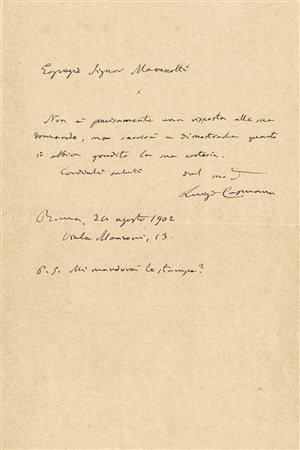 Egregio Signor Marescotti
Non è precisamente una risposta alle sue
domande, ma servirà a dimostrarle quanto
io abbia gradito la sua cortesia.
Cordiali saluti dal suo
Luigi Capuana
Roma, 24 agosto 1902
Viale Manzoni, 13.
P.S. Mi manderà le stampe?